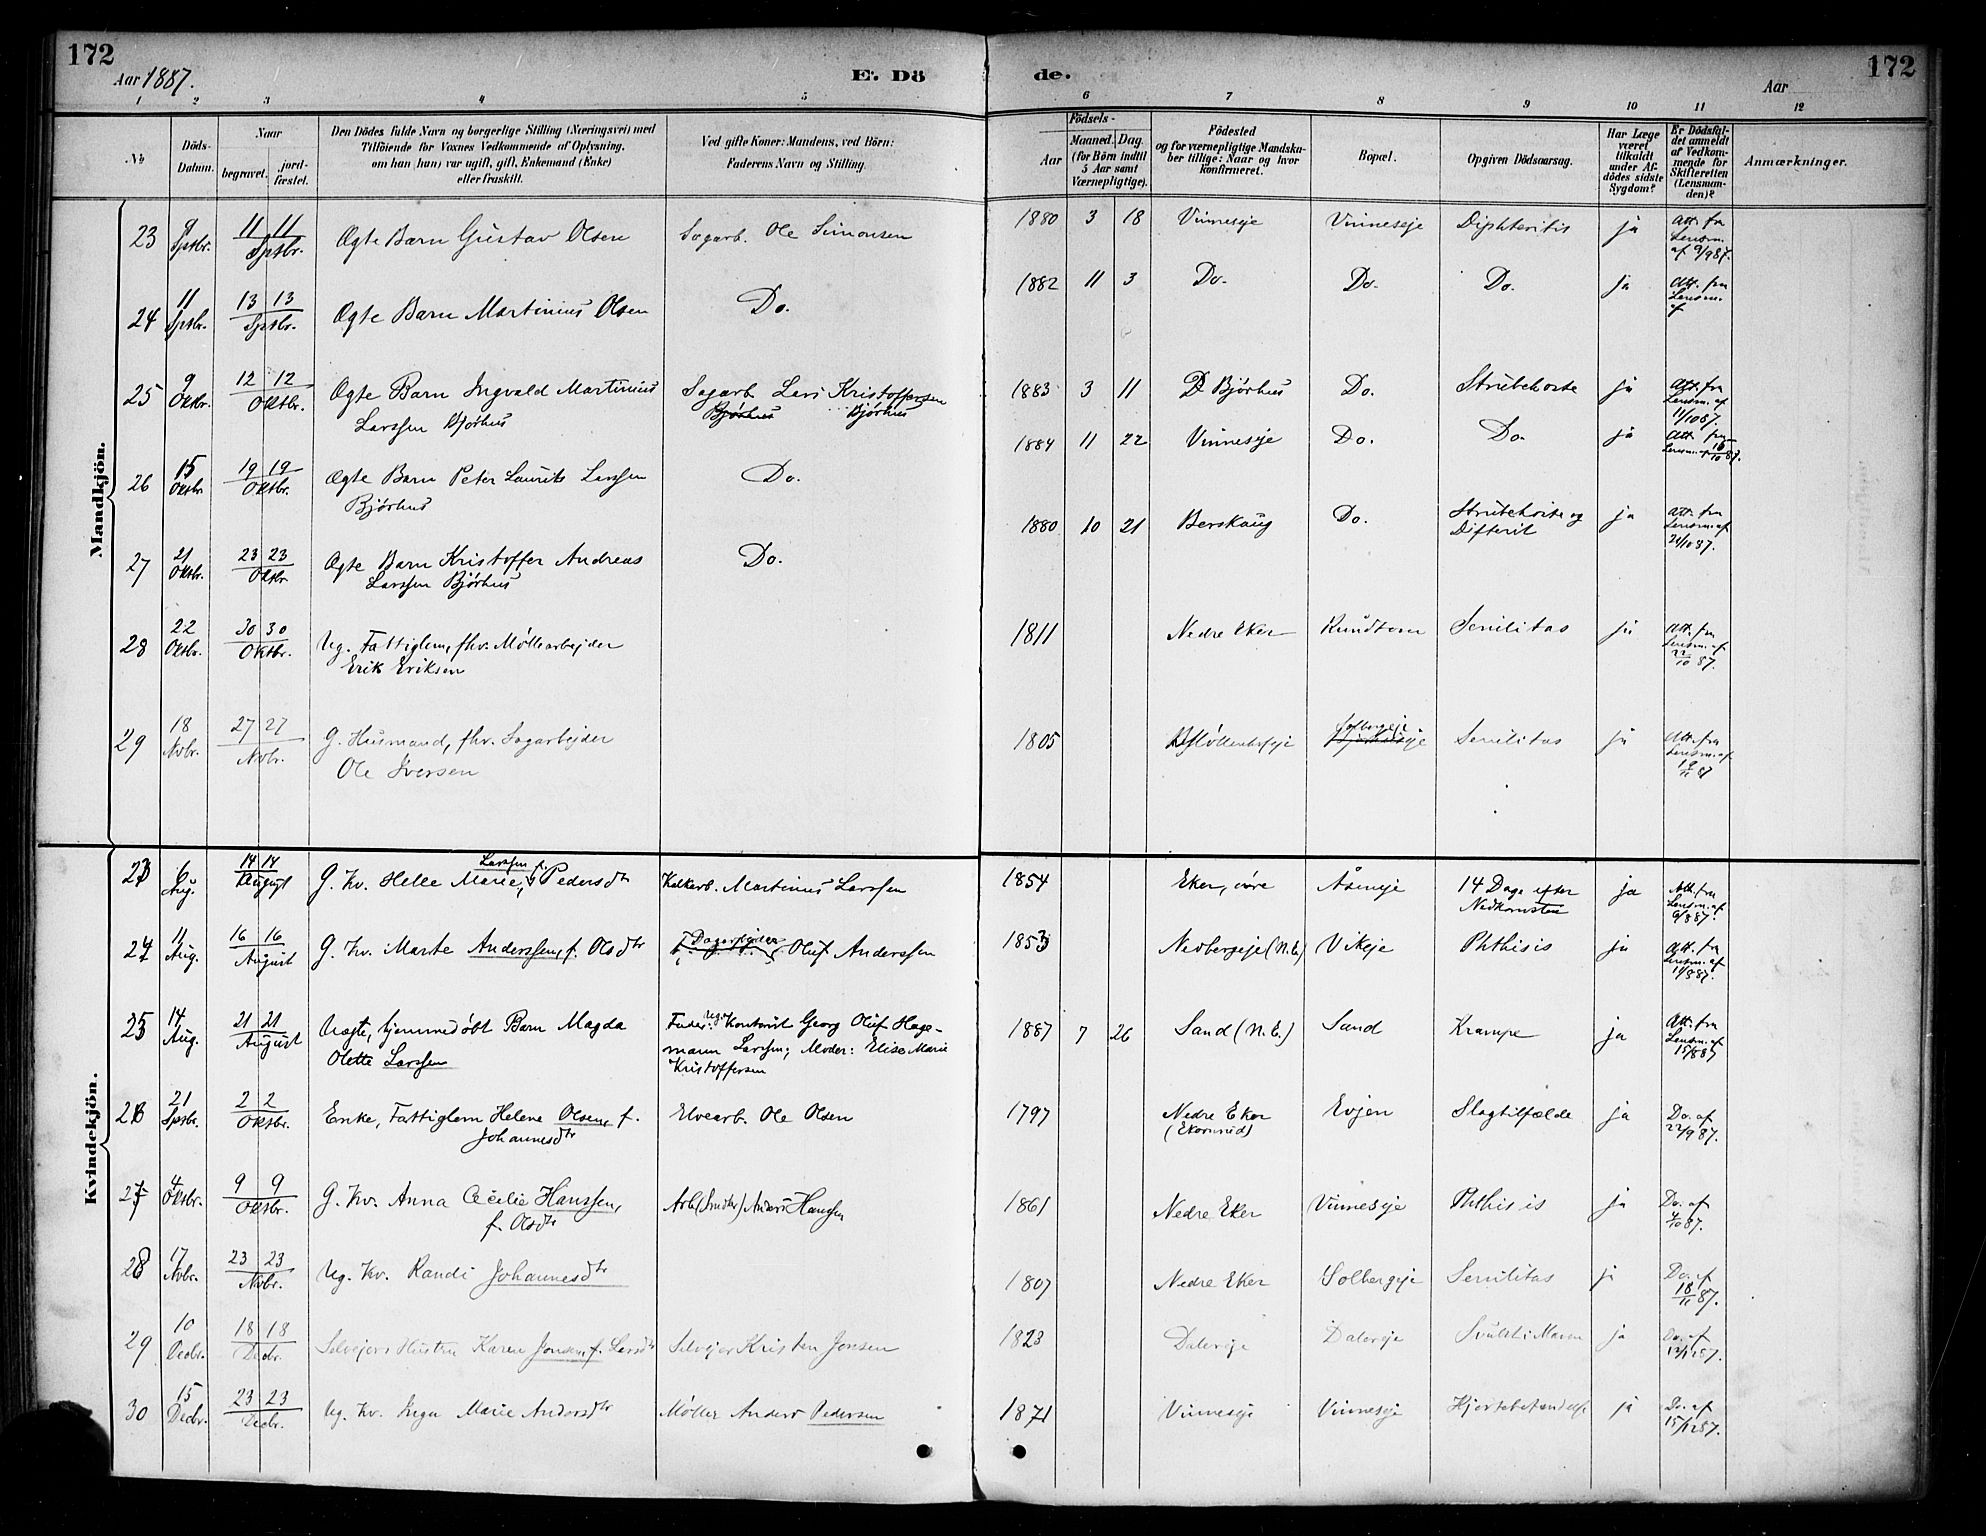 172
Aar 1887.
E. Dö
de.
Aar
172
1 2 3 4 5 6 7 8 9 10 11 12
No
Döds-
Datum.
Naar
begravet.
jord-
fæstet.
Den Dödes fulde Navn og borgerlige Stilling (Næringsvei) med
Tilföiende for Voxnes Vedkommende af Oplysning,
om han (hun) var ugift, gift, Enkemand (Enke)
eller fraskilt.
Ved gifte Koner: Mandens, ved Börn:
Faderens Navn og Stilling.
Födsels-
Aar
Maaned. Dag.
(for Börn indtil
5 Aar samt
Værnepligtige).
Födested
og for værnepligtige Mandska-
ber tillige: Naar og hvor
konfirmeret.
Bopæl.
Opgiven Dödsaarsag.
Har Læge
været
tilkaldt
under Af-
dödes sidste
Sygdom?
Er Dödsfal-
det anmeldt
af Vedkom-
mende for
Skifteretten
(Lensman-
den)?
Anmærkninger.
Mandkjön.
23 9 Sptbr. 11 11 Sptbr. Ægte Barn Gustav Olsen Sagarb. Ole Simonsen 1880 3 18 Vinnesje Vinneseje Diphteritis ja Att. fra
Lensm.
af 9/9 87.
24 11 Sptbr. 13 13 Sptbr. Ægte Barn Martinius Olsen Do. 1882 11 3 Do. Do. Do. ja Att. fra
Lensm.
af
25 9 Oktbr. 12 12 Oktbr. Ægte Barn Ingvald Martinius Sagarb. Lars Kristoffersen 1883 3 11 Bjørhus Do. Strubehoste ja Att. fra
Larssen Bjørhus Bjørhus Bjørhus Lensm. af
11/10 87.
26 15 Oktbr. 19 19 Oktbr. Ægte Barn Peter Laurits Larssen Do. 1884 11 22 Vinneseje Do. Do. ja Att. fra
Bjørhus Lensm. af 16/10 87.
27 21 Oktbr. 23 23 Oktbr. Ægte Barn Kristoffer Andreas Do. 1880 10 21 Berskaug Do. Strubehoste og ja Att. fra
Larssen Bjørhus Difterit Lensm. af
24/10 87.
28 22 Oktbr. 30 30 Oktbr. Ug. Fattiglem, fhv. Møllearbejder 1811 Nedre Eker Senilitas ja Att. fra
Erik Eriksen Lensm. af
22/10 87.
29 18 Novbr. 27 27 Novbr. G. Husmand, fhv. Sagarbejder 1805 Solbergeje Senilitas ja Att. fra
Ole Iversen Lensm. af
19/11 87
Kvindekjön.
23 6 Aug. 14 14 August G. Kv. Helle Marie Larssen, f. Pedersdtr Kalkarb. Martinius Larssen 1854 Eker, øvre Åseneje 14 Dage efter ja Att. fra
Nedkomsten Lensm. af
9/8 87.
24 11 Aug. 16 16 August G. Kv. Marte Anderssen, f. Olsdtr Dagarbejder Oluf Anderssen 1853 Nedbergeje (N.E.) Vikeje Phthisis ja Att. fra
Lensm. af
11/8 87.
25 14 Aug. 21 21 August Uægte, hjemmedøbt Barn Magda Fader: Ug. Kontorist Georg Oluf Hage- 1887 7 26 Sand (N.E.) Sand Krampe ja Att. fra
Olette Larssen mann Larssen; Moder: Elise Marie Lensm. af
Kristoffersen 15/8 87
26 21 Sptbr. 2 2 Oktbr. Enke, Fattiglem Helene Olsen, f. Elvearb. Ole Olsen 1797 Nedre Eker Evjen Slagtilfælde ja Do. af
Johannesdtr (Ekornrud) 22/9 87.
27 4 Oktbr. 9 9 Oktbr. G. Kv. Anna Cecilie Hanssen, Arb. (Snedker) Anders Hanssen 1861 Nedre Eker Vinneseje Phthisis ja Do. af
f. Olsdtr 4/10 87.
28 17 Novbr. 23 23 Novbr. Ug. Kv. Randi Johannesdtr 1807 Nedre Eker Solbergeje Senilitas ja Do. af
18/11 87.
29 10 Decbr. 18 18 Decbr. Selvejers Hustru Karen Jonsen, f. Larsdtr Selvejer Kristen Jonsen 1823 Dalereje Dalereje Svulst i Maven ja Do. af
13/12 87.
30 15 Decbr. 23 23 Decbr. Ug. Kv. Inga Marie Andersdtr Møller Anders Pedersen 1871 Vinneseje Vinneseje Hjertebetændelse ja Do. af
15/12 87.